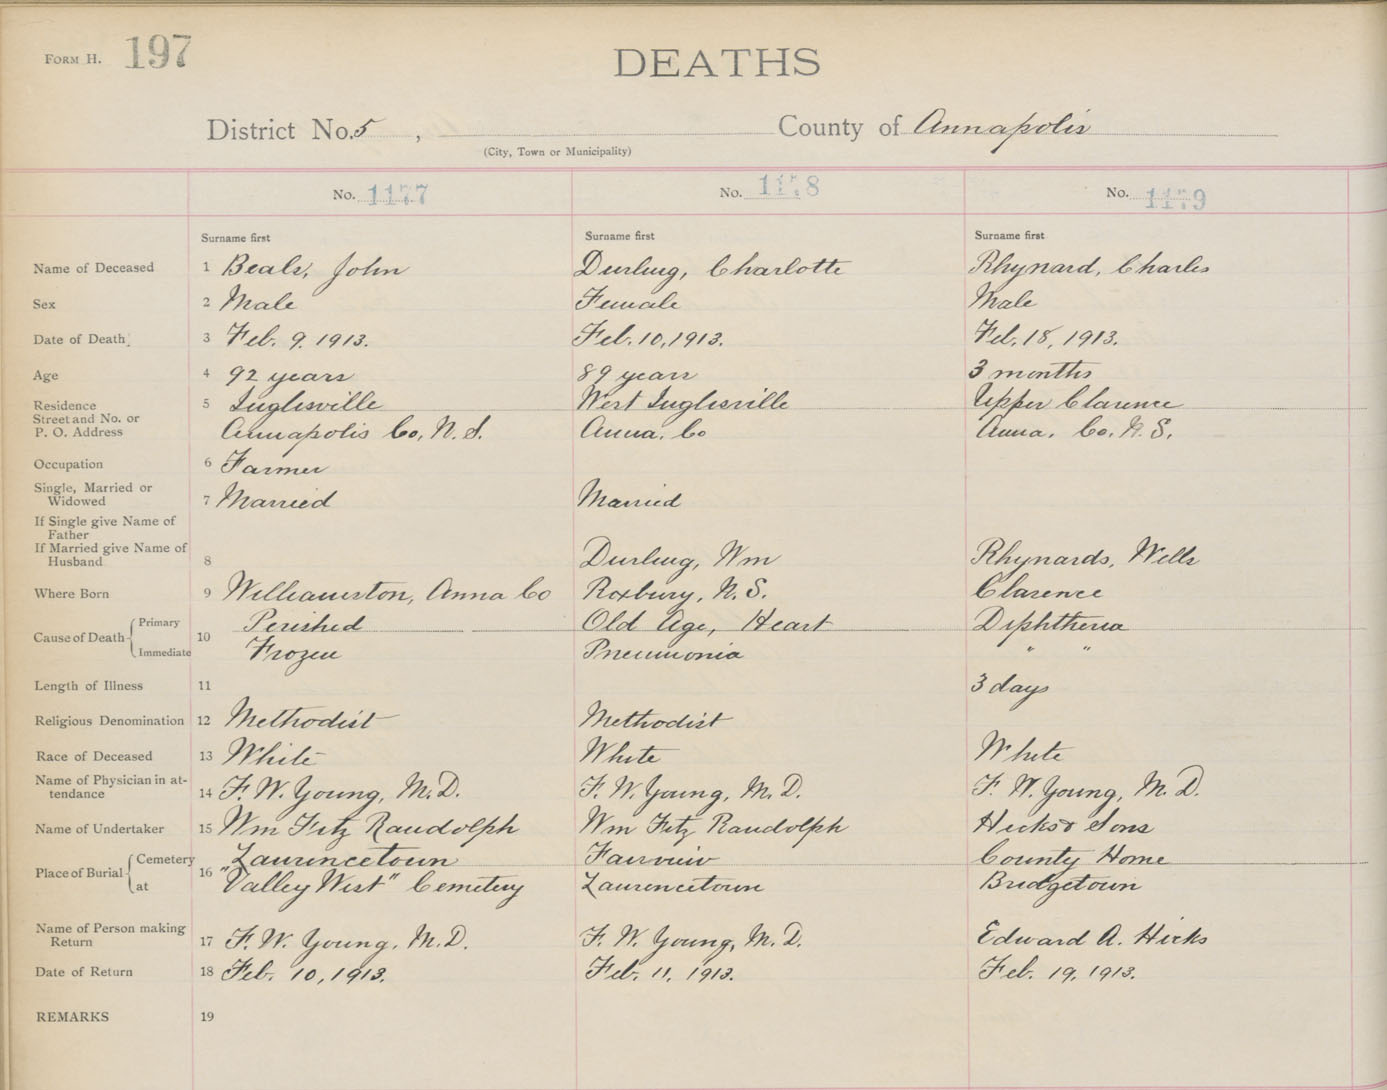 FORM H. 197
DEATHS
District No. 5 , County of Annapolis
(City, Town or Municipality)
No. 1177 No. 1178 No. 1179
Surname first Surname first Surname first
Name of Deceased 1 Beals, John Durling, Charlotte Rhynard, Charles
Sex 2 Male Female Male
Date of Death 3 Feb. 9. 1913. Feb. 10, 1913. Feb. 18, 1913.
Age 4 92 years 89 years 3 months
Residence 5 Inglisville West Inglisville Upper Clarence
Street and No. or
P. O. Address Annapolis Co, N. S. Anna. Co Anna. Co. N. S.
Occupation 6 Farmer
Single, Married or
Widowed 7 Married Married
If Single give Name of
Father
If Married give Name of
Husband 8 Durling, Wm Rhynards, Wells
Where Born 9 Williamston, Anna Co Roxbury, N. S. Clarence
Cause of Death Primary 10 Perished Old Age, Heart Diphtheria
Immediate Frozen Pneumonia " "
Length of Illness 11 3 days
Religious Denomination 12 Methodist Methodist
Race of Deceased 13 White White White
Name of Physician in at-
tendance 14 F. W. Young, M. D. F. W. Young, M. D. F. W. Young, M. D.
Name of Undertaker 15 Wm Fitz Randolph Wm Fitz Randolph Hicks & Sons
Place of Burial Cemetery 16 Laurencetown Fairview County Home
at "Valley West" Cemetery Laurencetown Bridgetown
Name of Person making
Return 17 F. W. Young, M. D. F. W. Young, M. D. Edward A. Hicks
Date of Return 18 Feb. 10, 1913. Feb. 11, 1913. Feb. 19, 1913.
REMARKS 19